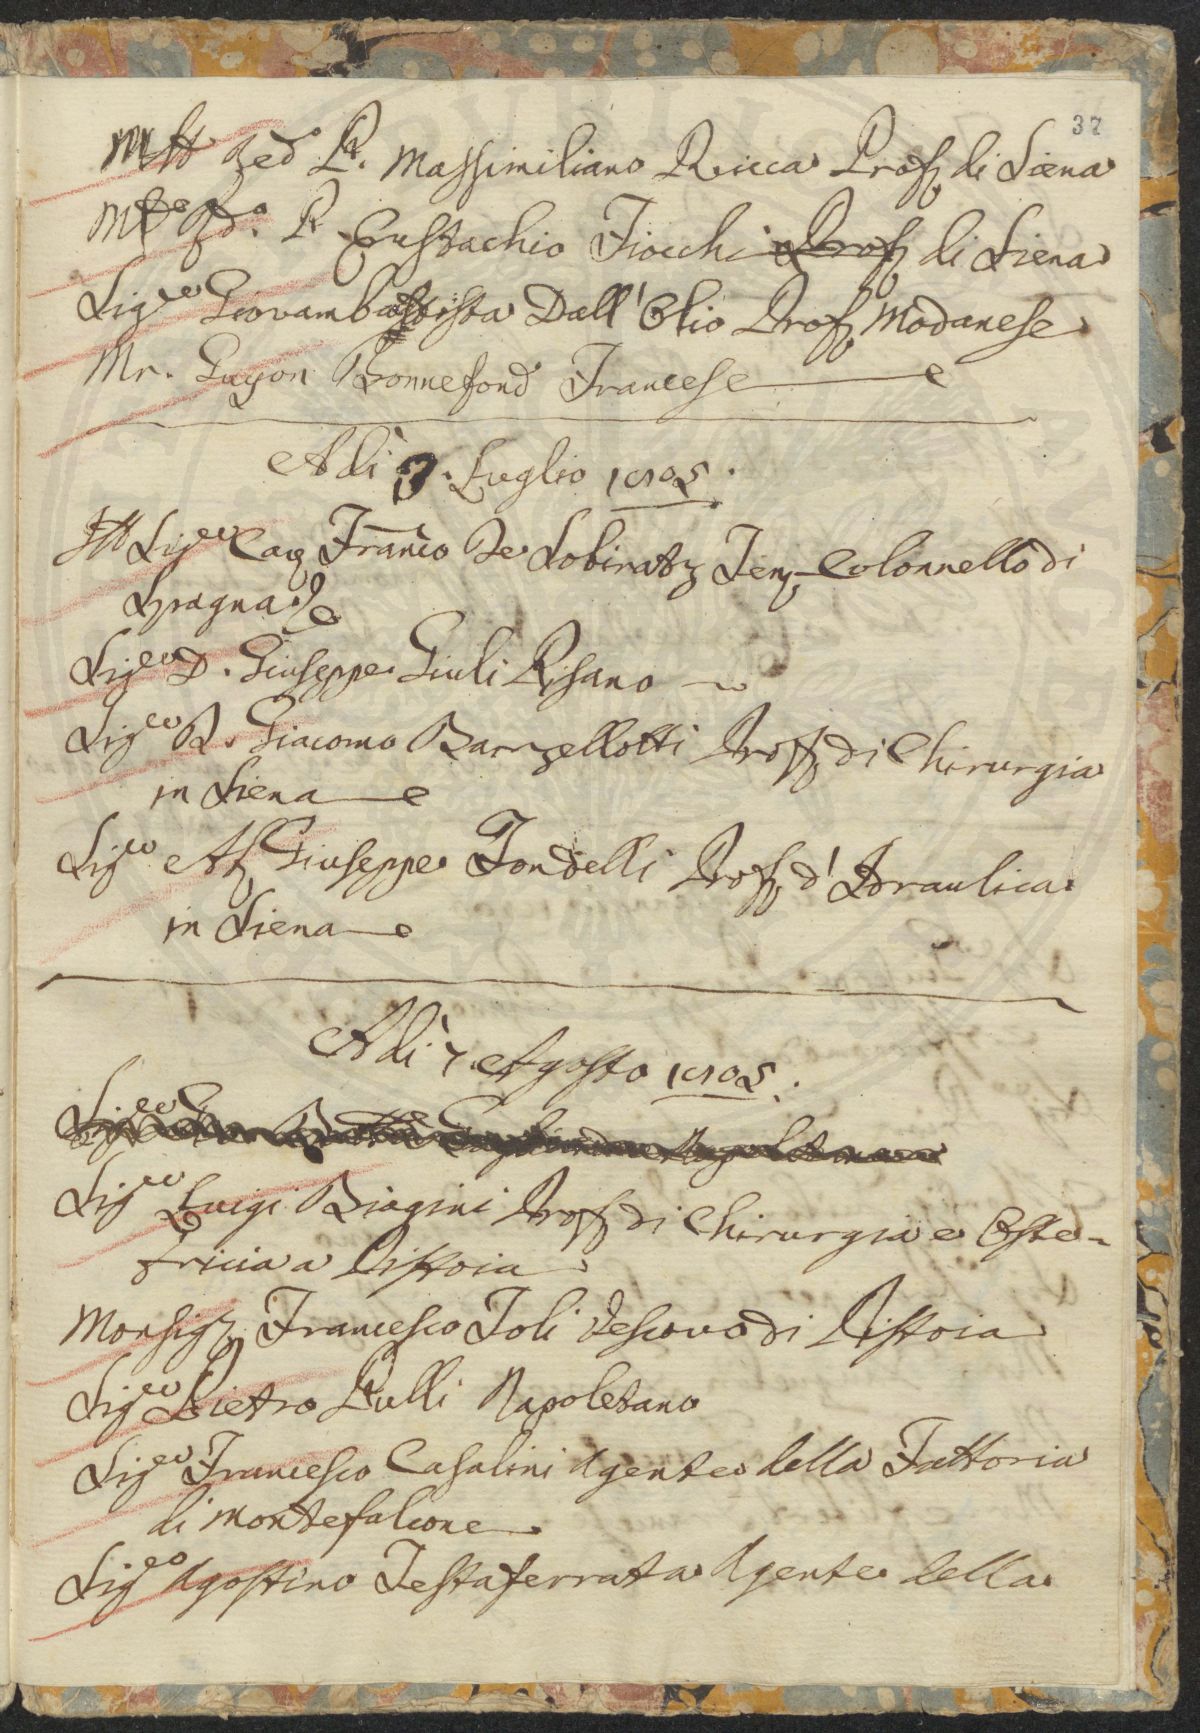 37
Mtt Red.o P. Massimiliano Ricca Prof. di Siena
Mto Rdo. P. Eustachio Fiocchi Prof. di Siena
Sigre Giovambattista Dall'Olio Prof. Modanese
Mr. Guyon Bonnefond Francese
Adì 3. Luglio 1805.
Sigre Cav. Franco De Sobiratz Ten. Colonnello di
Spagna
Sigre D. Giuseppe Giuli Pisano
Sigre D. Giacomo Barzellotti Proff. di Chirurgia
in Siena
Sigre Ab. Giuseppe Tondelli Prof. d'Idraulica
in Siena
Adì 7. Agosto 1805.
Sigre Luigi Biagini Prof. di Chirurgia e Oste-
tricia a Pistoia
Monsig. Francesco Toli Vescovo di Pistoia
Sigre Pietro Pulli Napoletano
Sigre Francesco Casalini Agente della Fattoria
di Montefalcone
Sigre Agostino Testaferrata Agente della